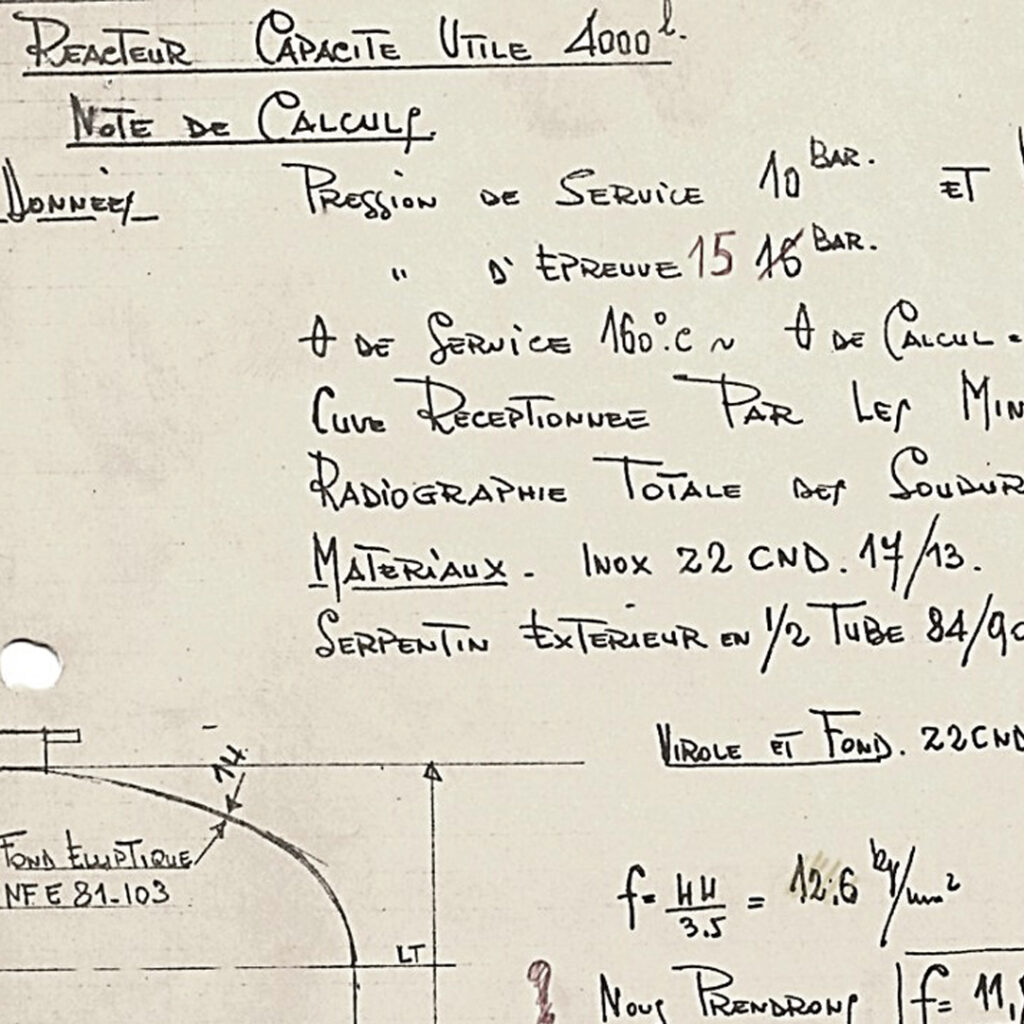 REACTEUR CAPACITE UTILE 4000 l.
NOTE DE CALCULS
DONNEES PRESSION DE SERVICE 10 BAR. ET
" D'EPREUVE 15 16 BAR.
θ DE SERVICE 160°.C ~ θ DE CALCUL =
CUVE RECEPTIONNEE PAR LES MIN
RADIOGRAPHIE TOTALE DES SOUDUR
MATERIAUX. INOX Z2 CND. 17/13.
SERPENTIN EXTERIEUR EN 1/2 TUBE 84/90
VIROLE ET FOND. Z2CND
14
FOND ELLIPTIQUE
NF E 81-103
f = 44/3.5 = 12.6 kg/mm²
LT
NOUS PRENDRONS f = 11,